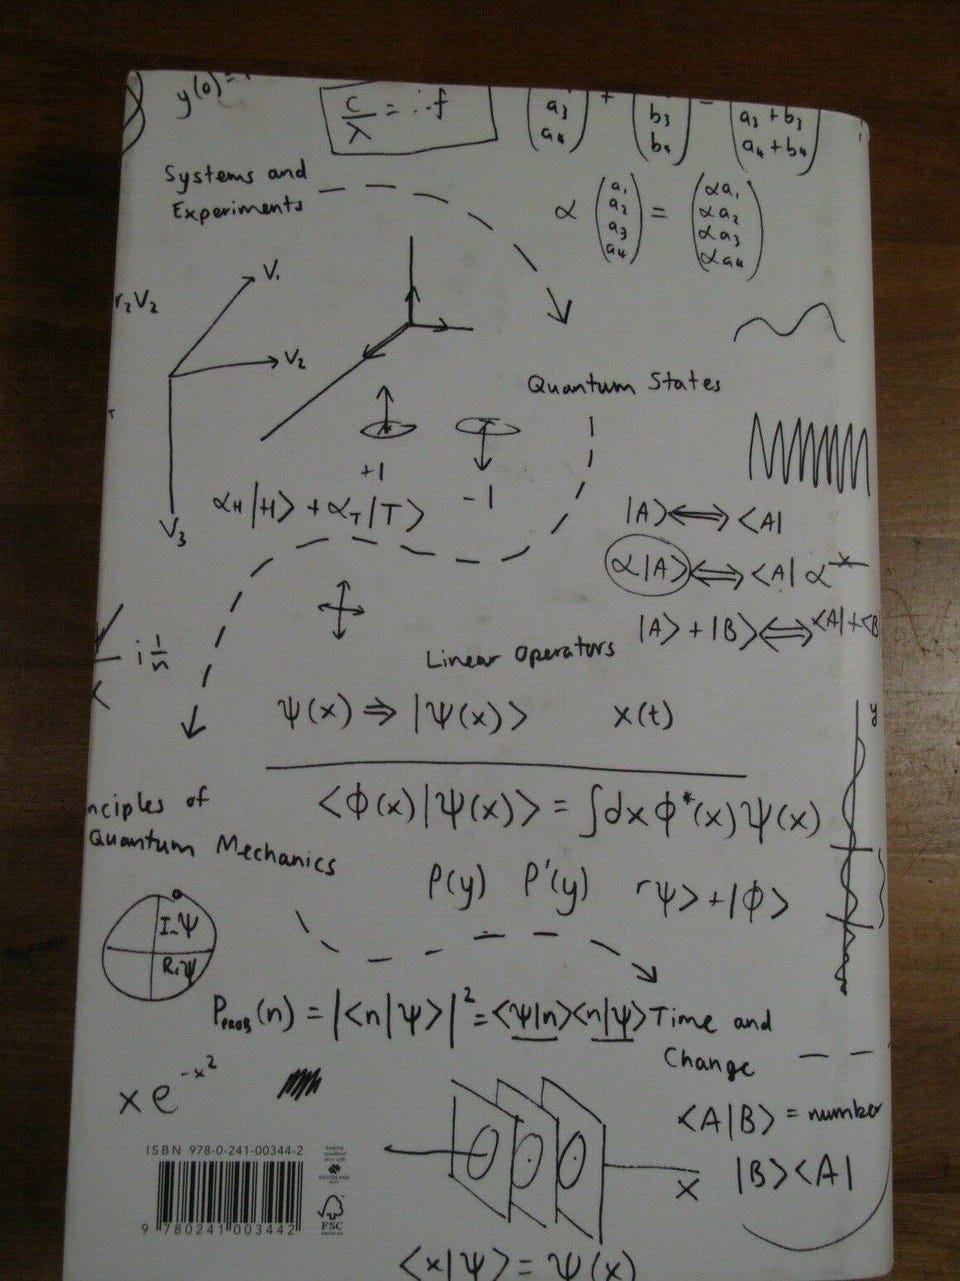 y(0)=
c/λ = f
a₃ + b₃ = a₃ + b₃
a₄ b₄ a₄ + b₄
Systems and
Experiments
α (a₁ a₂ a₃ a₄) = (αa₁ αa₂ αa₃ αa₄)
V₁
r₂V₂
V₂
V₃
Quantum States
+1
-1
α_H|H> + α_T|T>
|A> ⟺ <A|
α|A> ⟺ <A| α*
|A> + |B> ⟺ <A| + <B
i 1/n
Linear Operators
ψ(x) ⇒ |ψ(x)>
x(t)
y
nciples of
Quantum Mechanics
<ϕ(x)|ψ(x)> = ∫dx ϕ*(x)ψ(x)
P(y) P'(y) rψ> + |ϕ>
Im ψ
R. ψ
P_PROB(n) = |<n|ψ>|² = <ψ|n><n|ψ>
Time and
Change
x e^-x²
<A|B> = number
|B><A|
x
ISBN 978-0-241-00344-2
9 780241 003442
FSC
<x|ψ> = ψ(x)